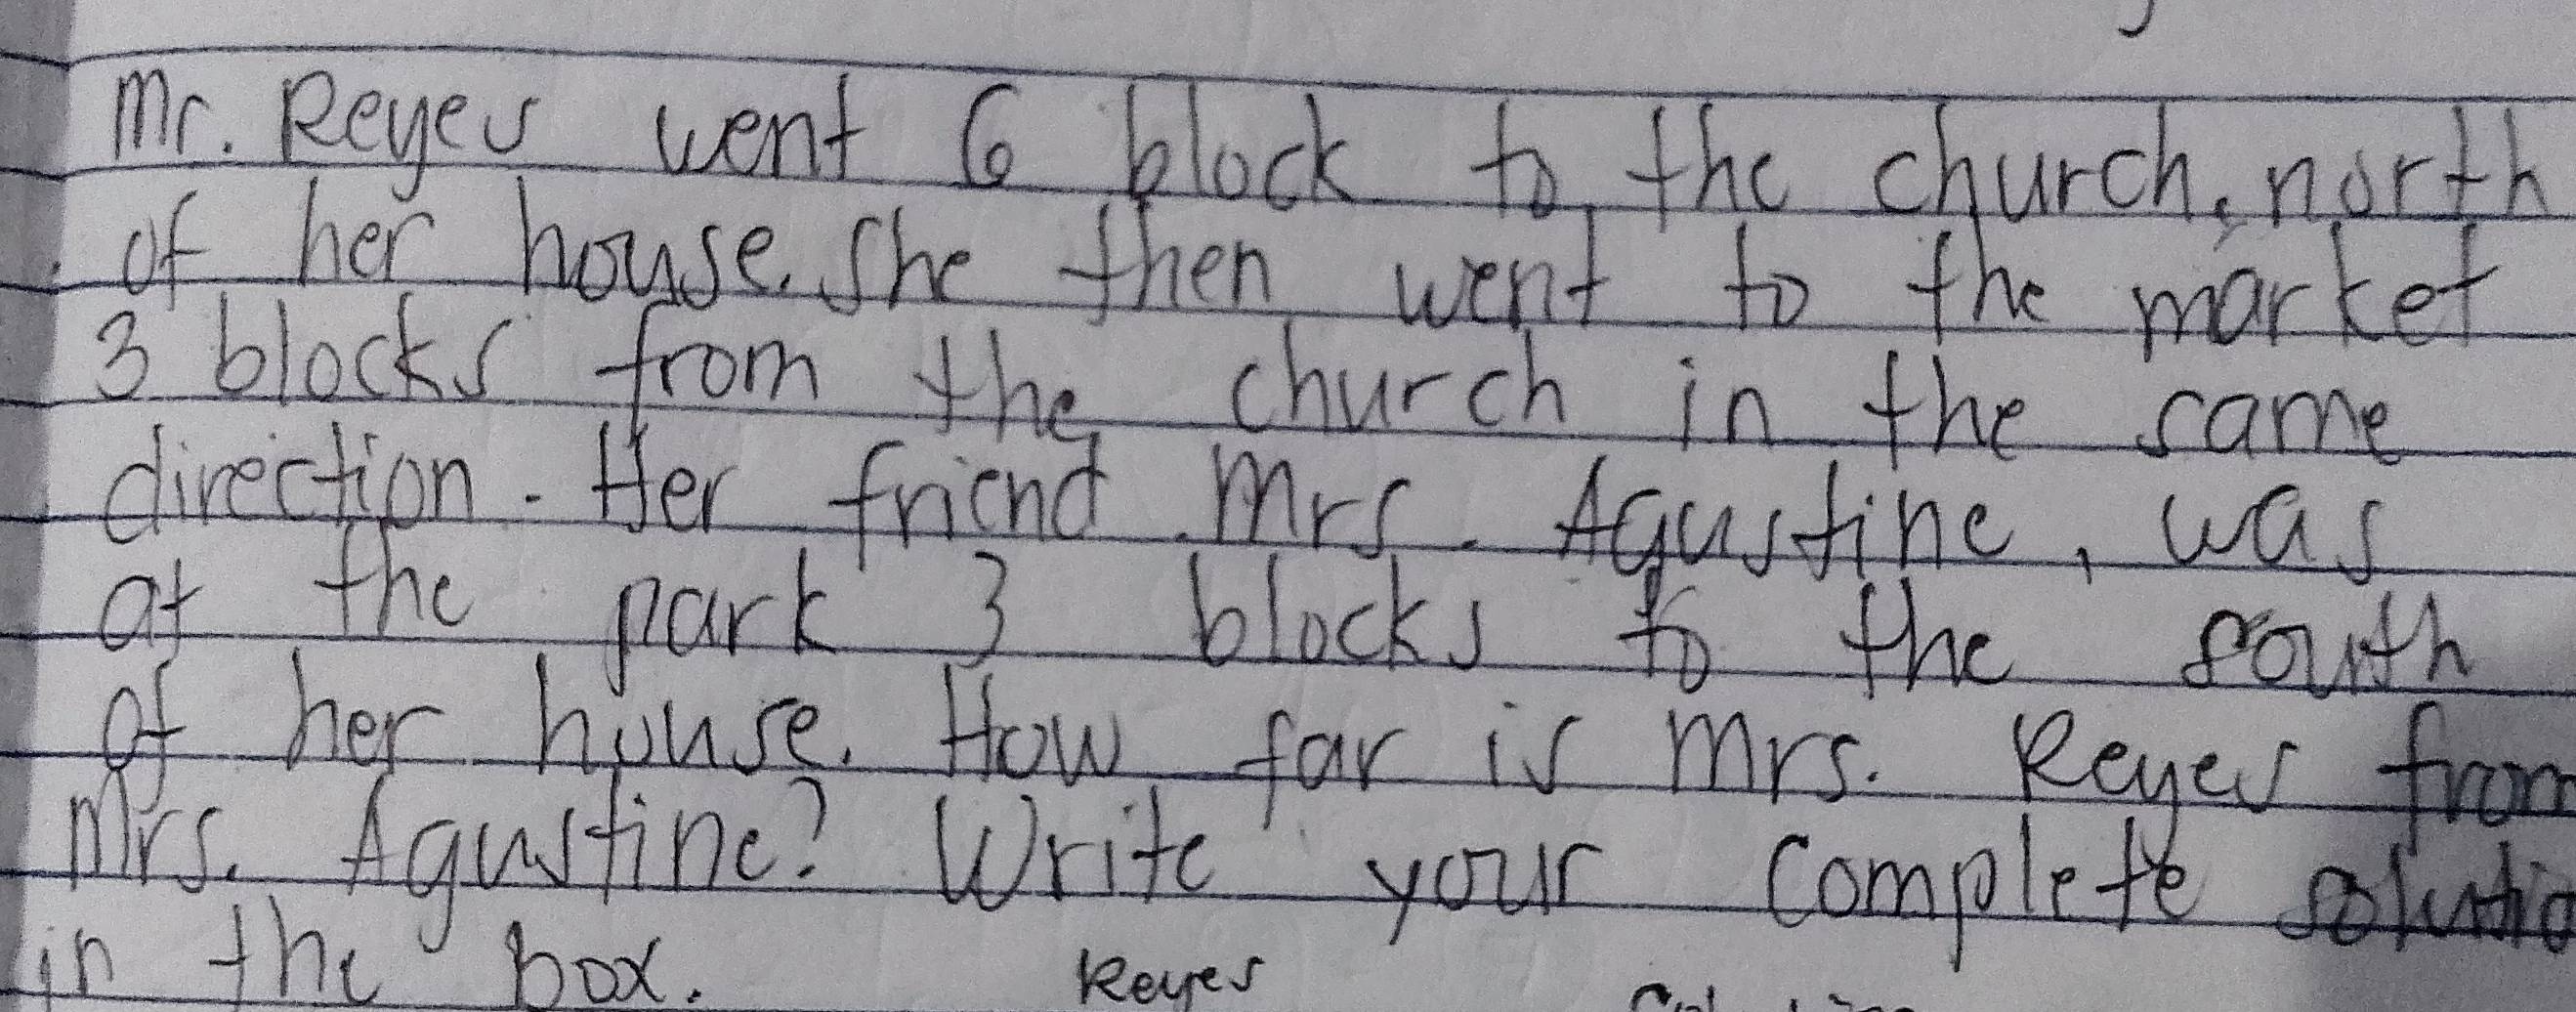 Mr. Reyes went 6 block to the church, north
of her house. She then went to the market
3 blocks from the church in the same
direction. Her friend Mrs. Agustine, was
at the park 3 blocks to the south
of her house. How far is Mrs. Reyes from
Mrs. Agustine? Write your complete solutio
in the box.
Reyes